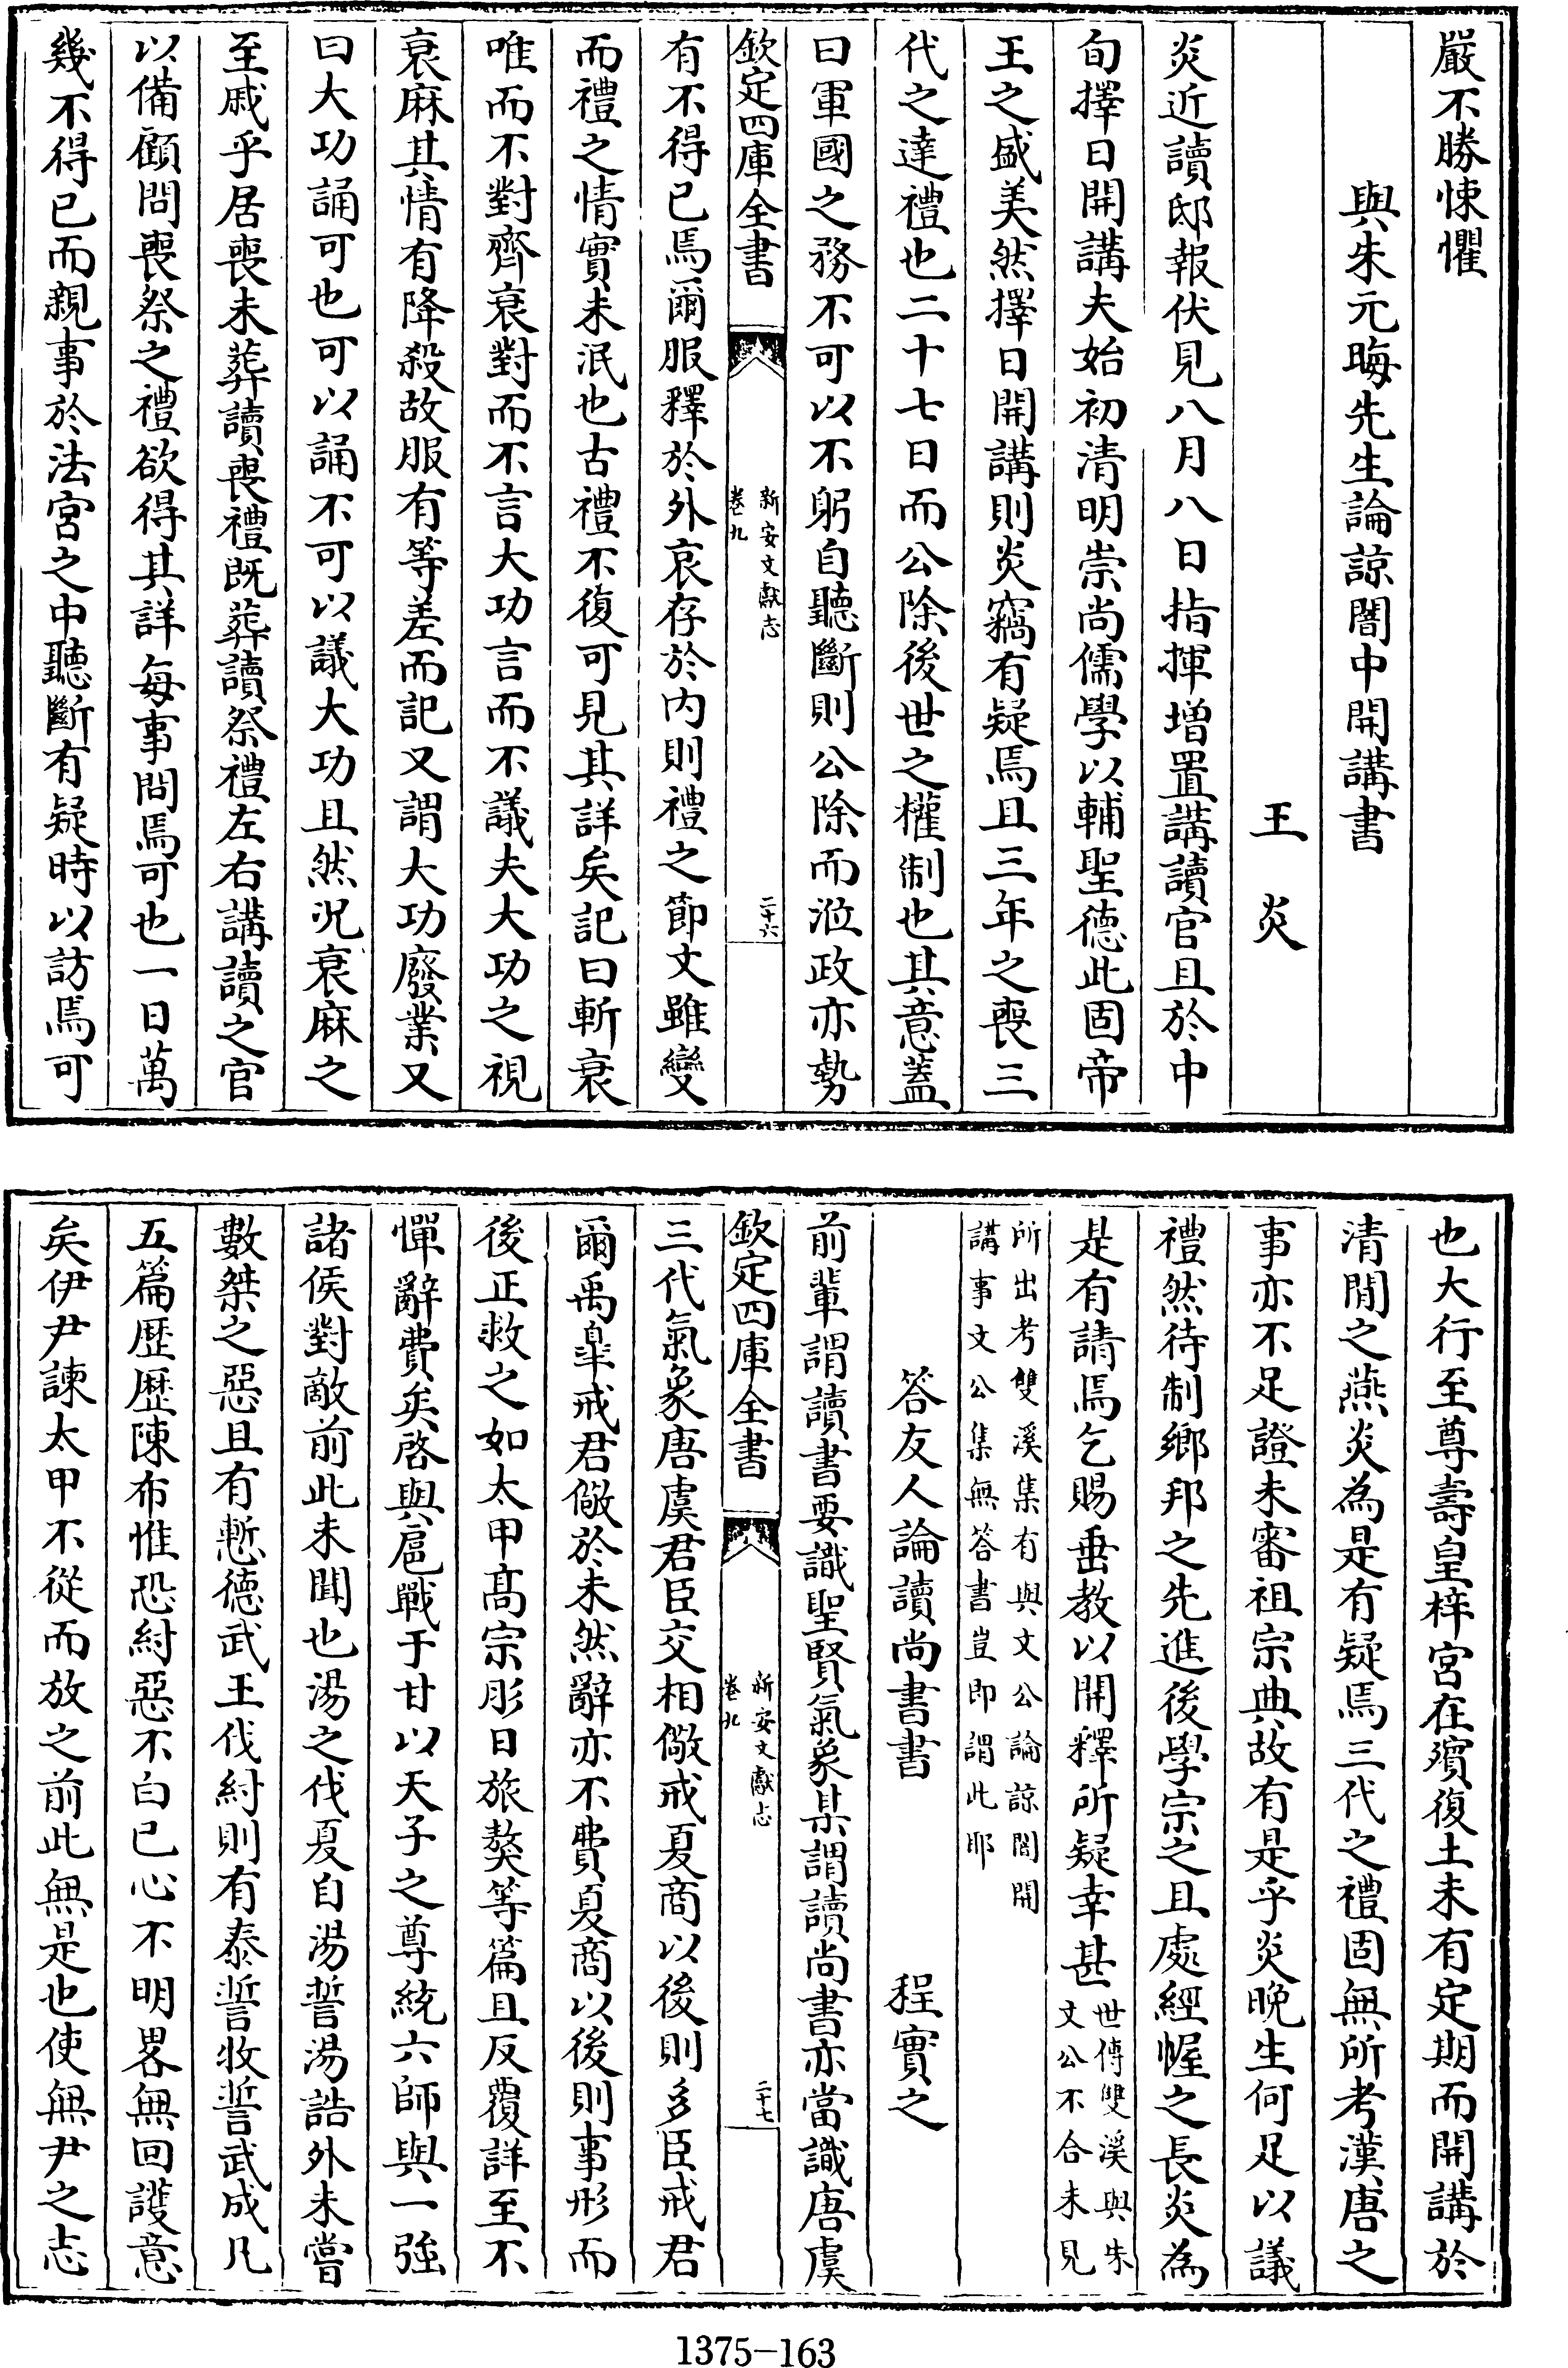 嚴不勝悚懼
與朱元晦先生論諒闇中開講書
王炎
炎近讀邸報伏見八月八日指揮增置講讀官且於中
旬擇日開講夫始初清明崇尚儒學以輔聖德此固帝
王之盛美然擇日開講則炎竊有疑焉且三年之喪三
代之達禮也二十七日而公除後世之權制也其意蓋
曰軍國之務不可以不躬自聽斷則公除而涖政亦勢
欽定四庫全書
新安文獻志
卷九
二十六
有不得已焉爾服釋於外哀存於内則禮之節文雖變
而禮之情實未泯也古禮不復可見其詳矣記曰斬衰
唯而不對齊衰對而不言大功言而不議夫大功之視
衰麻其情有降殺故服有等差而記又謂大功廢業又
曰大功誦可也可以誦不可以議大功且然況衰麻之
至戚乎居喪未葬讀喪禮既葬讀祭禮左右講讀之官
以備顧問喪祭之禮欲得其詳每事問焉可也一日萬
幾不得已而親事於法宮之中聽斷有疑時以訪焉可
也大行至尊壽皇梓宮在殯復土未有定期而開講於
清閒之燕炎為是有疑焉三代之禮固無所考漢唐之
事亦不足證未審祖宗典故有是乎炎晚生何足以議
禮然待制鄉邦之先進後學宗之且處經幄之長炎為
是有請焉乞賜垂教以開釋所疑幸甚
世傳雙溪與朱
文公不合未見
所出考雙溪集有與文公論諒闇開
講事文公集無答書豈即謂此耶
答友人論讀尚書書
程實之
前輩謂讀書要識聖賢氣象某謂讀尚書亦當識唐虞
欽定四庫全書
新安文獻志
卷九
二十七
三代氣象唐虞君臣交相儆戒夏商以後則多臣戒君
爾禹臯戒君儆於未然辭亦不費夏商以後則事形而
後正救之如太甲高宗肜日旅獒等篇且反覆詳至不
憚辭費矣啓與扈戰于甘以天子之尊統六師與一強
諸侯對敵前此未聞也湯之伐夏自湯誓湯誥外未嘗
數桀之惡且有慙德武王伐紂則有泰誓牧誓武成凡
五篇歷歷陳布惟恐紂惡不白已心不明畧無回護意
矣伊尹諫太甲不從而放之前此無是也使無尹之志
1375-163